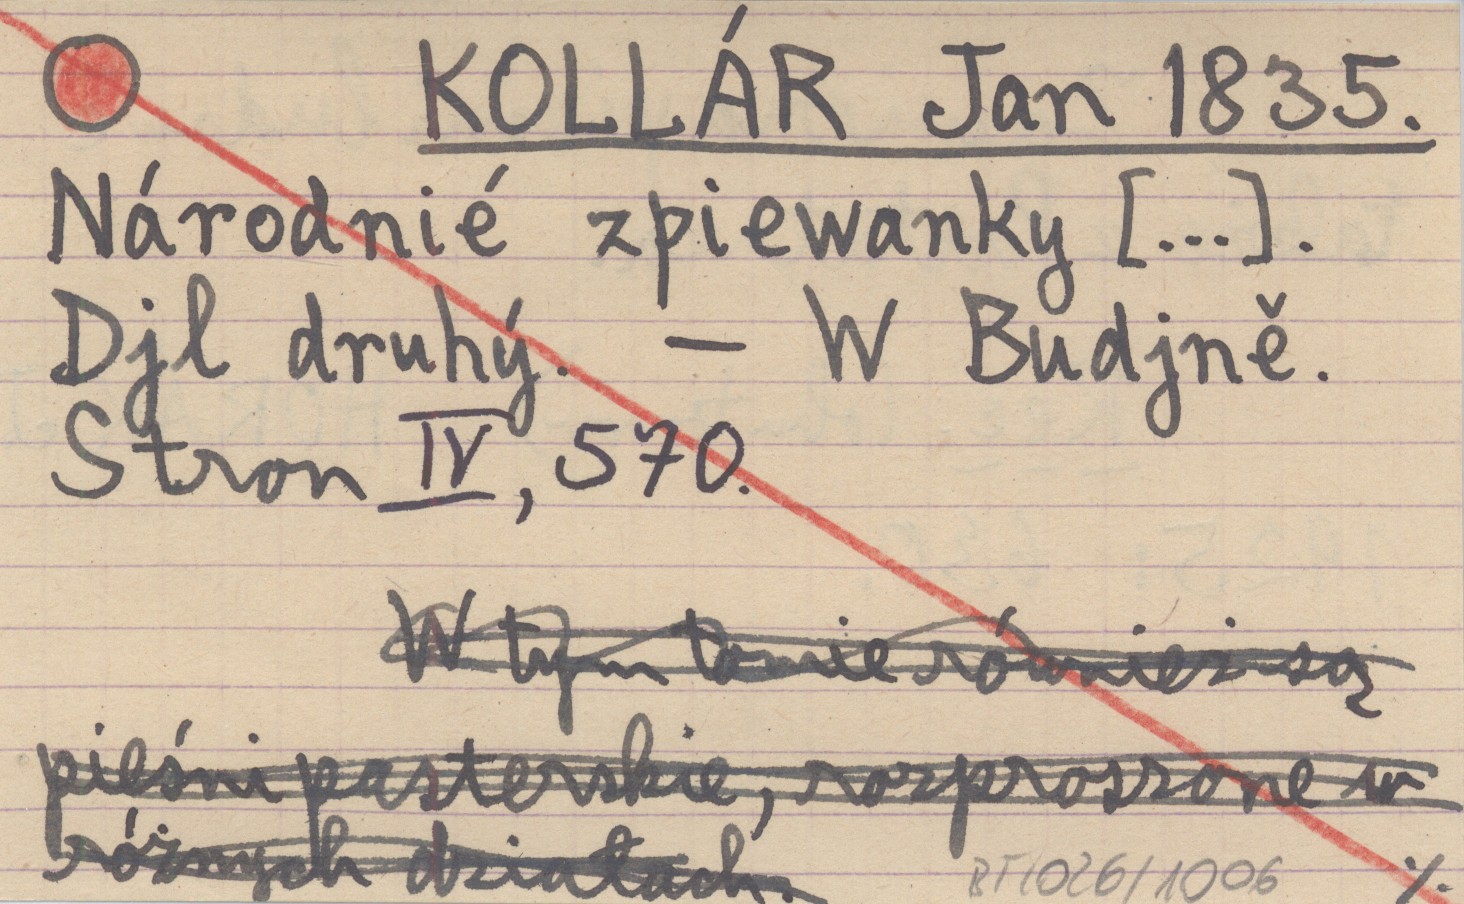 KOLLÁR Jan 1835.
Národnié zpiewanky [...].
Djl druhý. — W Budjně.
Stron IV, 570.
W tym tomie również są
pieśni pasterskie, rozproszone w
różnych działach
RT/026/1006 ./.